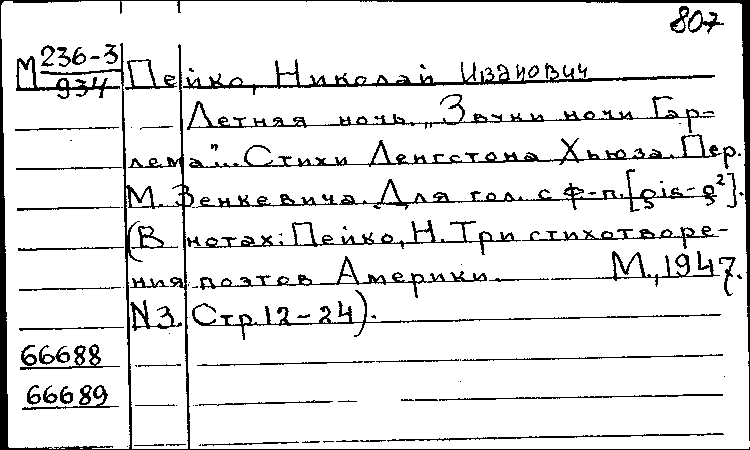 807
М 236-3
934
Пейко, Николай Иванович
Летняя ночь. „Звуки ночи Гар-
лема"... Стихи Ленгстона Хьюза. Пер.
М. Зенкевича. Для гол. с ф-п. [gis-g²].
(В нотах: Пейко, Н. Три стихотворе-
ния поэтов Америки. М., 1947.
N3. Стр. 12-24).
66688
66689